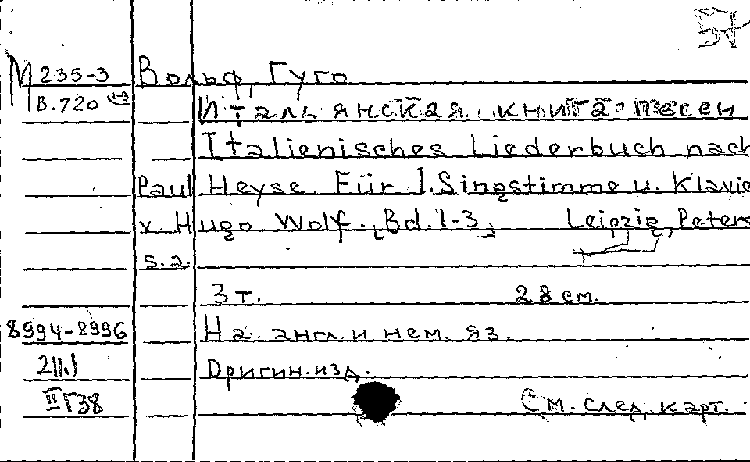 57
М 235-3 Вольф, Гуго
В.720
Итальянская книга песен
Italienisches Liederbuch nach
Paul Heyse. Für 1.Singstimme u. Klavie
v. Hugo Wolf. [Bd.1-3] Leipzig, Peters
s.a.
3 т. 28 см.
8994-8996 На англ. и нем. яз.
Оригин. изд.
II Г38 См. след. карт.